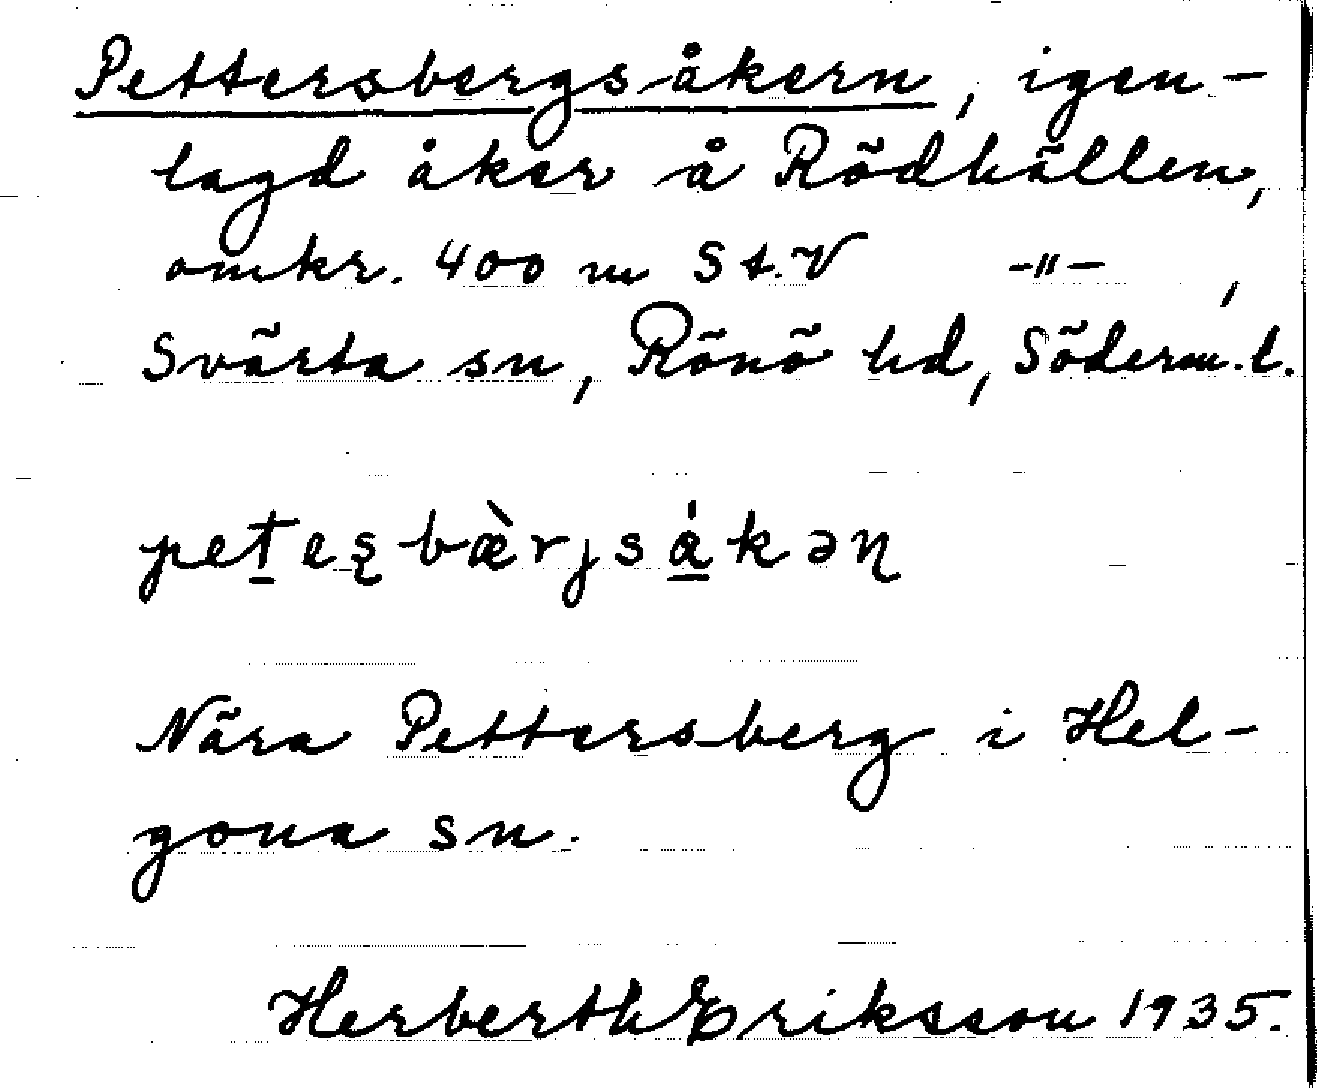 Pettersbergsåkern, igen-
lagd åker å Rödhällen,
omkr. 400 m S t. V -"-,
Svärta sn, Rönö hd, Söderm. l.
peteʂbæ̀rjsákəɳ
Nära Pettersberg i Hel-
gona sn.
Herberth Eriksson 1935.